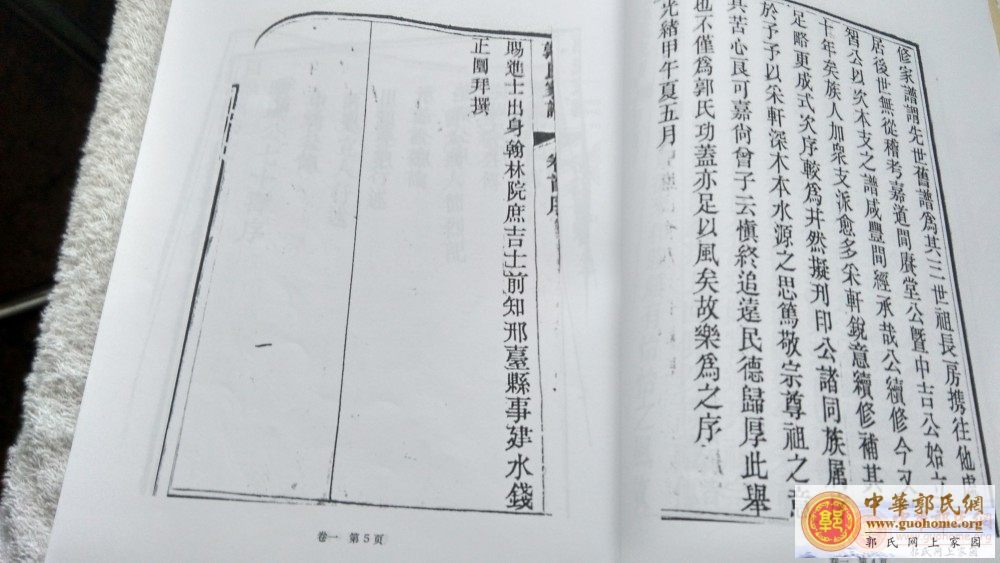 修家譜謂先世舊譜爲其三世祖長房携往他
居後世無從稽考嘉道間賡堂公暨中吉公始
智公以次木支之譜咸豐間經承哉公續修今又
十年矣族人加衆支派愈多采軒銳意續修補其
足略更成式次序較爲井然擬刊印公諸同族屬
於予予以采軒深木本水源之思篤敬宗尊祖之
其苦心良可嘉尚曾子云愼終追遠民德歸厚此舉
也不僅爲郭氏功蓋亦足以風矣故樂爲之序
光緒甲午夏五月
賜進士出身翰林院庶吉士前知邢臺縣事建水錢
正圜拜撰
卷一 第5頁
中華郭氏網
www.guohome.org
郭氏网上家园
郭